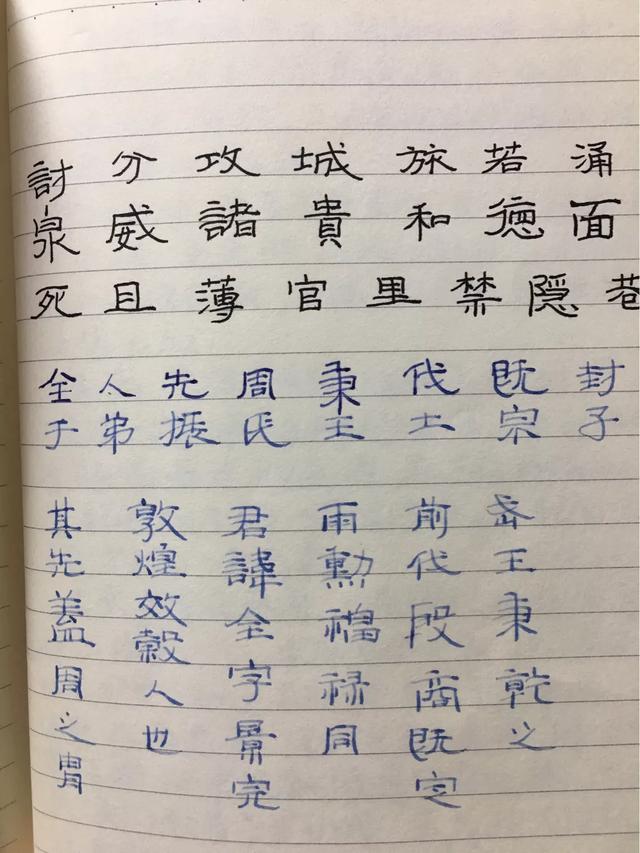 討分攻城旅若涌
泉威諸貴和德面
死且薄官里禁隱巷
全人先周秉伐既封
于弟振氏王土宗子
武王秉乾之
前伐殷商既定
爾勳福祿同
君諱全字景完
敦煌效穀人也
其先蓋周之胄